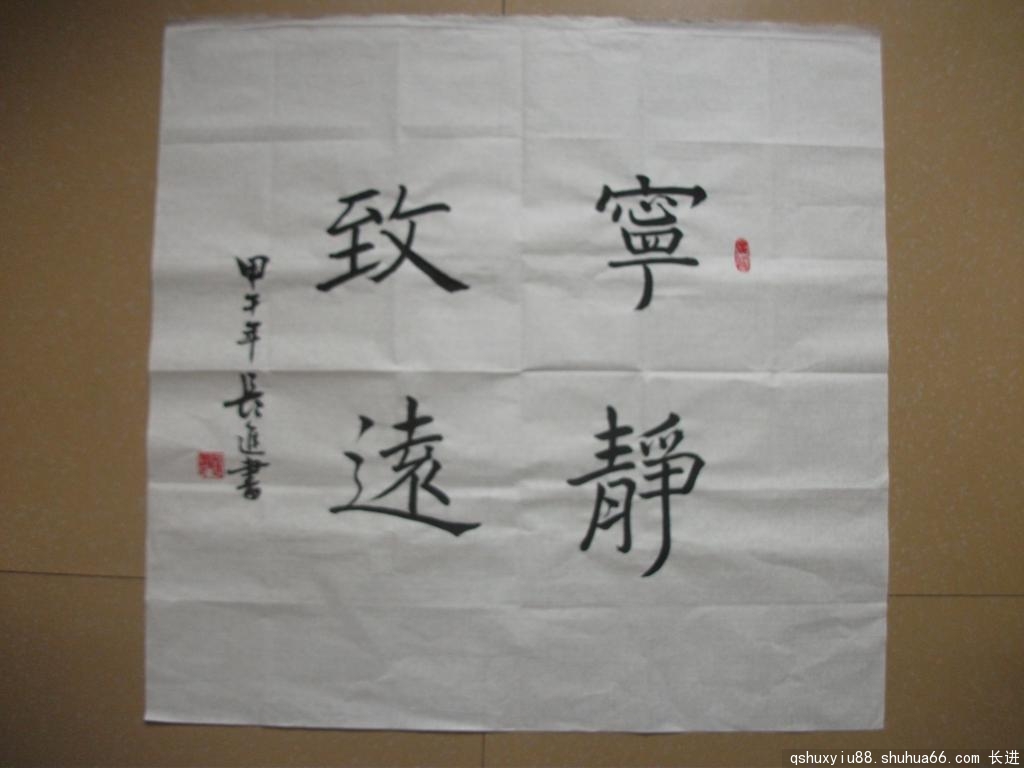 寧靜
致遠
甲午年長進書
qshuxyiu88.shuhua66.com 长进